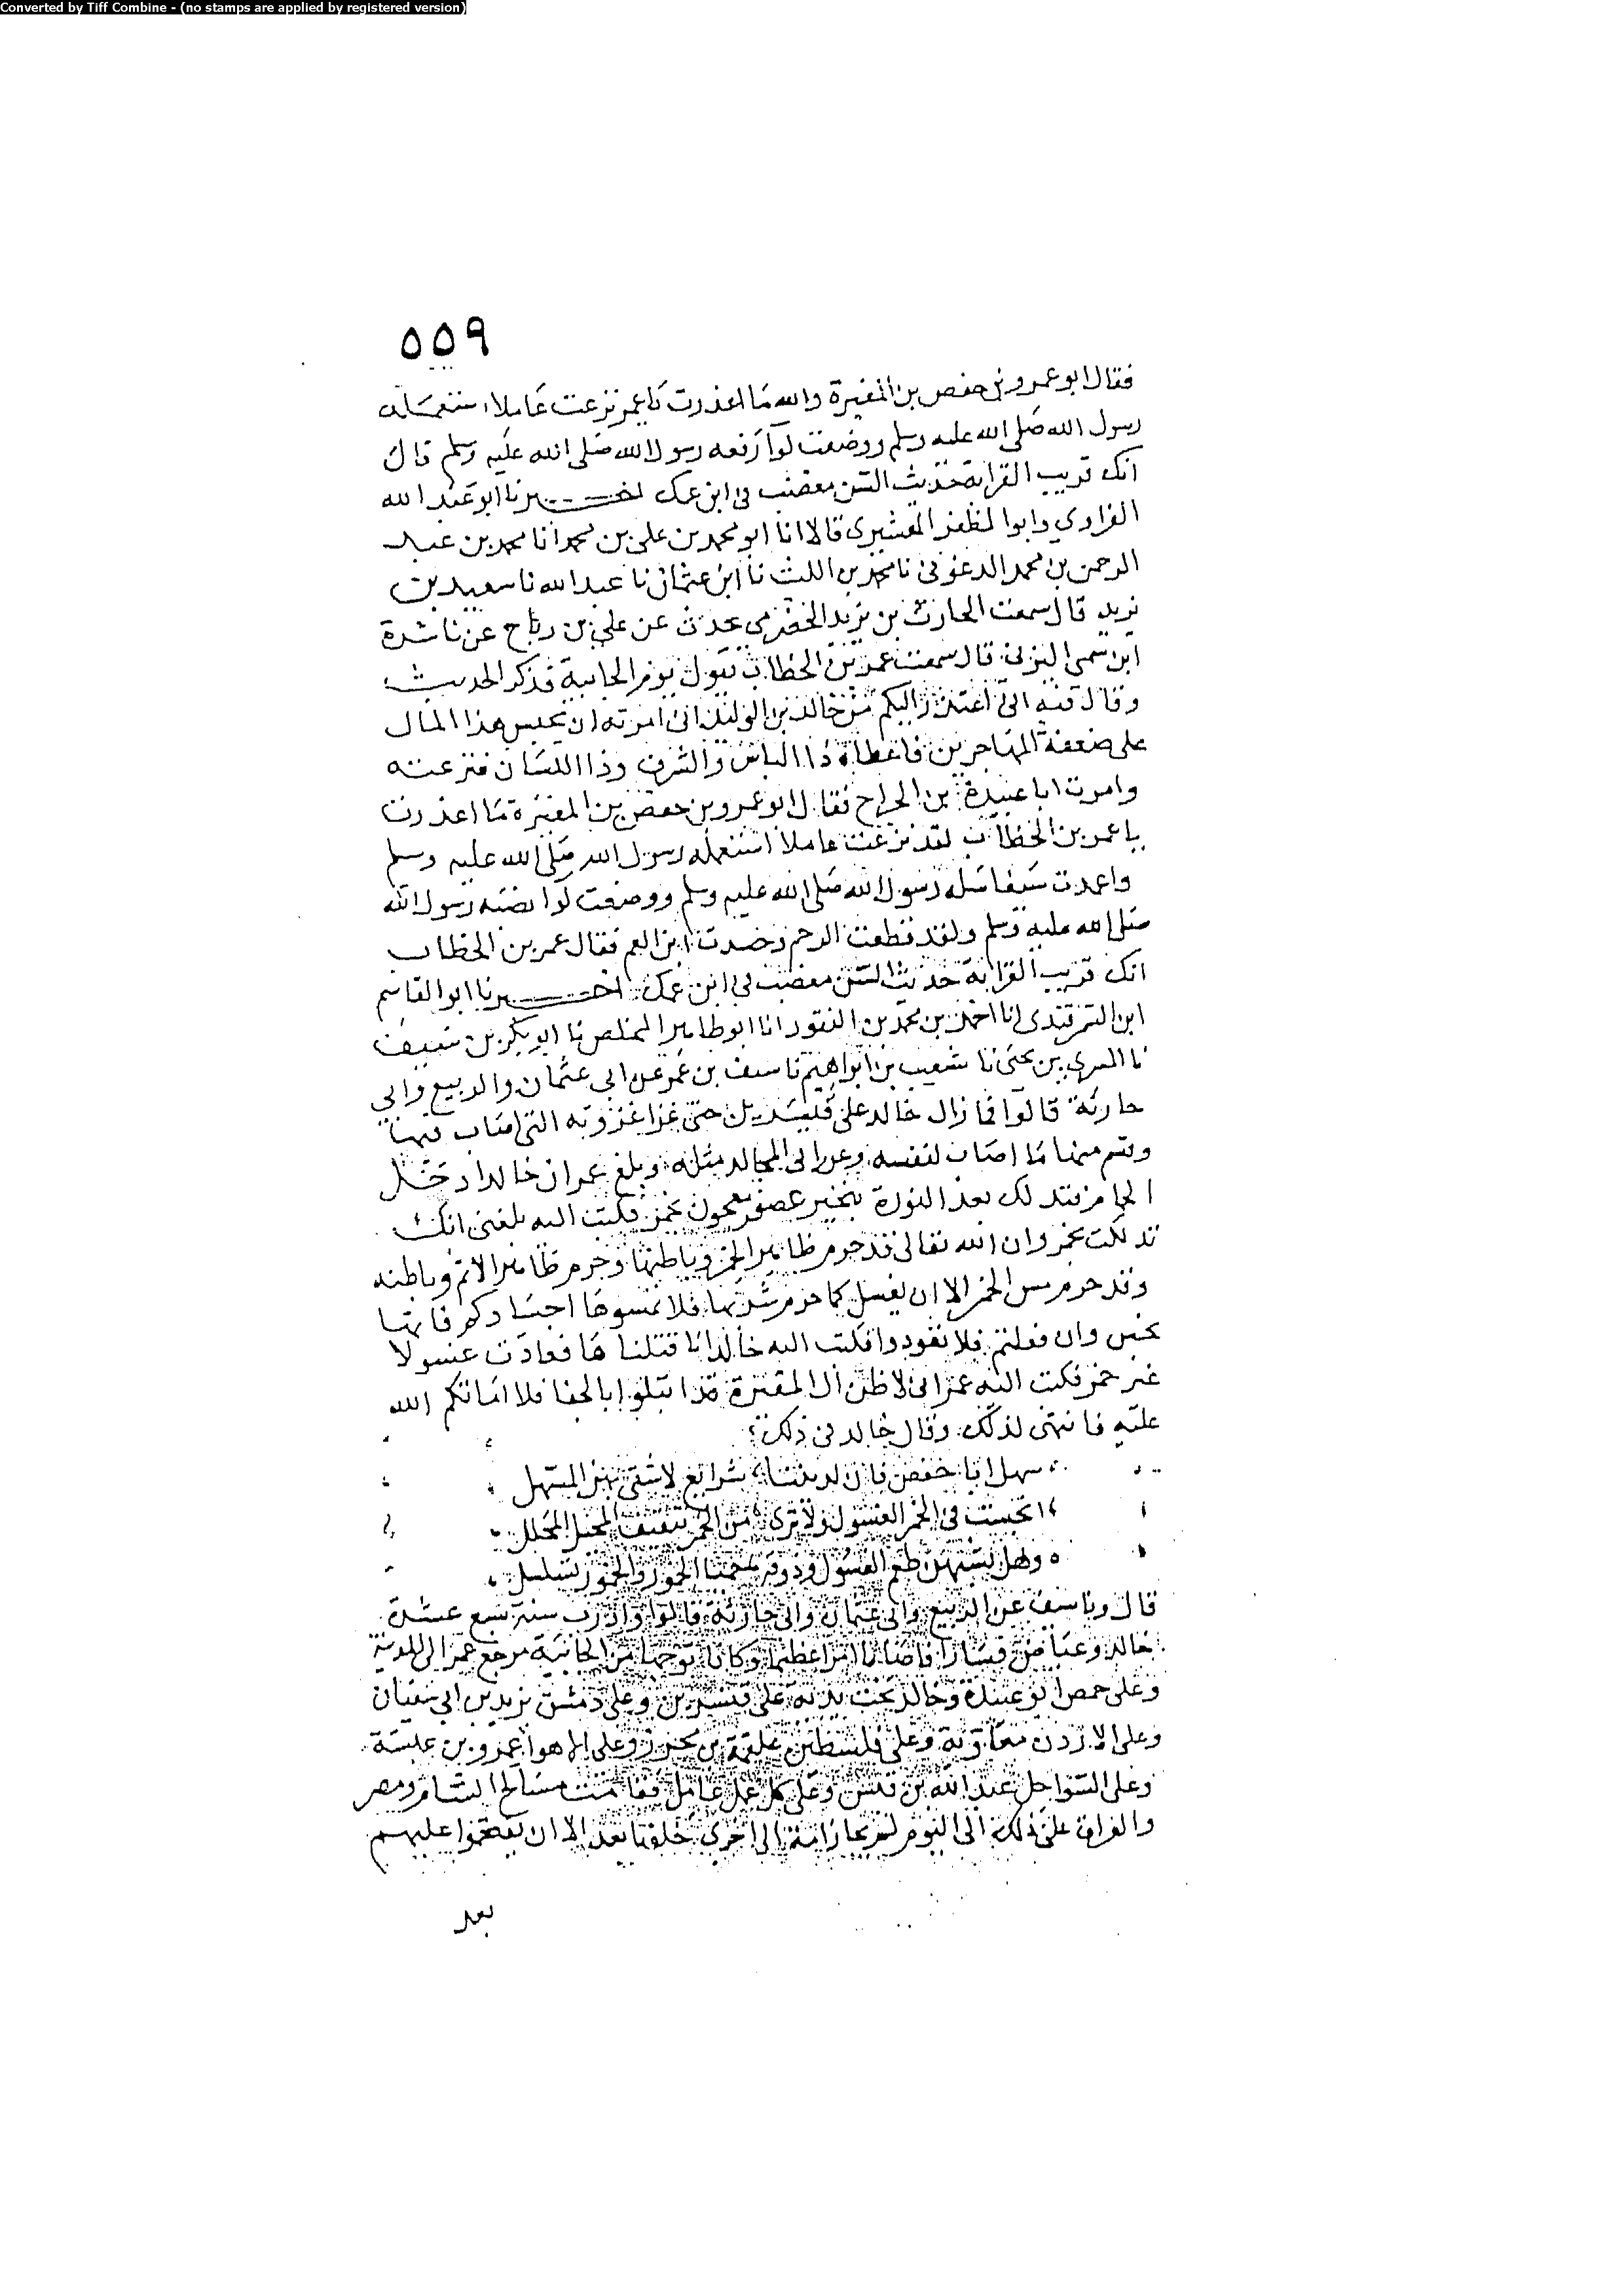 Converted by Tiff Combine - (no stamps are applied by registered version)
٥٥٩
فقال ابو عمرو بن حفص بن المغيرة والله ما اعذرت يا عمر نزعت عاملا استعمله
رسول الله صلى الله عليه وسلم ووضعت لوآ رفعه رسول الله صلى الله عليه وسلم قال
انك قريب القرابة حديث السن مغضب في ابن عمك اخبرنا ابو عبد الله
الفراوي وابوا لمظفر القشيرى قالا انا ابو محمد بن على بن محمد انا محمد بن عبد
الرحمن بن محمد الدغولى نا محمد بن الليث نا ابن عثمان نا عبد الله نا سعيد بن
يزيد قال سمعت الحارث بن يزيد الحضرمي يحدث عن علي بن رباح عن ناشرة
ابن سمى اليزنى قال سمعت عمر بن الخطاب يقول يوم الجابية فذكر الحديث
وقال فيه انى اعتذر اليكم من خالد بن الوليد انى امرته ان يحبس هذا المال
على ضعفة المهاجرين فاعطاه ذا الباس والشرف وذا اللسان فنزعته
وامرت ابا عبيدة بن الجراح فقال ابو عمرو بن حفص بن المغيرة ما اعذرت
يا عمر بن الخطاب لقد نزعت عاملا استعمله رسول الله صلى الله عليه وسلم
واغمدت سيفا سله رسول الله صلى الله عليه وسلم ووضعت لوا نصبه رسول الله
صلى الله عليه وسلم ولقد قطعت الرحم وحسدت ابن العم فقال عمر بن الخطاب
انك قريب القرابة حديث السن مغضب في ابن عمك اخبرنا ابو القاسم
ابن السمرقندى انا احمد بن محمد بن النقور انا ابو طاهر المخلص نا ابو بكر بن سيف
نا السري بن يحيى نا شعيب بن ابراهيم نا سيف بن عمر عن ابي عثمان والربيع وابي
حارثة قالوا فما زال خالد على قنسرين حتى غزا غزوته التى اصاب فيها
وقسم منها ما اصاب لنفسه وعن ابى المجالد مثله وبلغ عمر ان خالدا دخل
الحمام فتدلك بعد النورة بخبز عصفر معجون بخمر فكتب اليه بلغنى انك
تدلكت بخمر وان الله تعالى قد حرم ظاهر الخمر وباطنها وحرم ظاهر الاثم وباطنه
وقد حرم مس الخمر الا ان يغسل كما حرم شربها فلا تمسوها اجسادكم فانها
نجس وان فعلتم فلا تعودوا فكتب اليه خالد انا قتلناها فعادت غسولا
غير خمر فكتب اليه عمر انى لاظن آل المغيرة قد ابتلوا بالجفا فلا اماتكم الله
عليه فانتهى لذلك وقال خالد فى ذلك
سهل ابا حفص فان لديننا شرايع لا يشقى بهن المسهل
انجست فى الخمر الغسول ولا ترى من الخمر تثقيف المحيل المحلل
وهل يشبهن طعم الغسول وذوقه حميا الخمور والخمور تسلسل
قال ونا سيف عن الربيع وابى عثمان وابى حارثة قالوا وادرب سنة سبع عشرة
خالد وعياض فسارا فاصابا اموالا عظيمة وكانا توجها من الجابية مرجع عمر الى المدينة
وعلى حمص ابو عبيدة وخالد تحت يديه على قنسرين وعلى دمشق يزيد بن ابي سفيان
وعلى الاردن معاوية وعلى فلسطين علقمة بن مجزز وعلى الاهوا عمرو بن عبسة
وعلى السواحل عبد الله بن قيس وعلى كل عمل عامل فقامت مسالح الشام ومصر
والعراق على ذلك الى اليوم لم تجاز امة الى اخرى عملها بعد الا ان يقتحموا عليهم
بعد